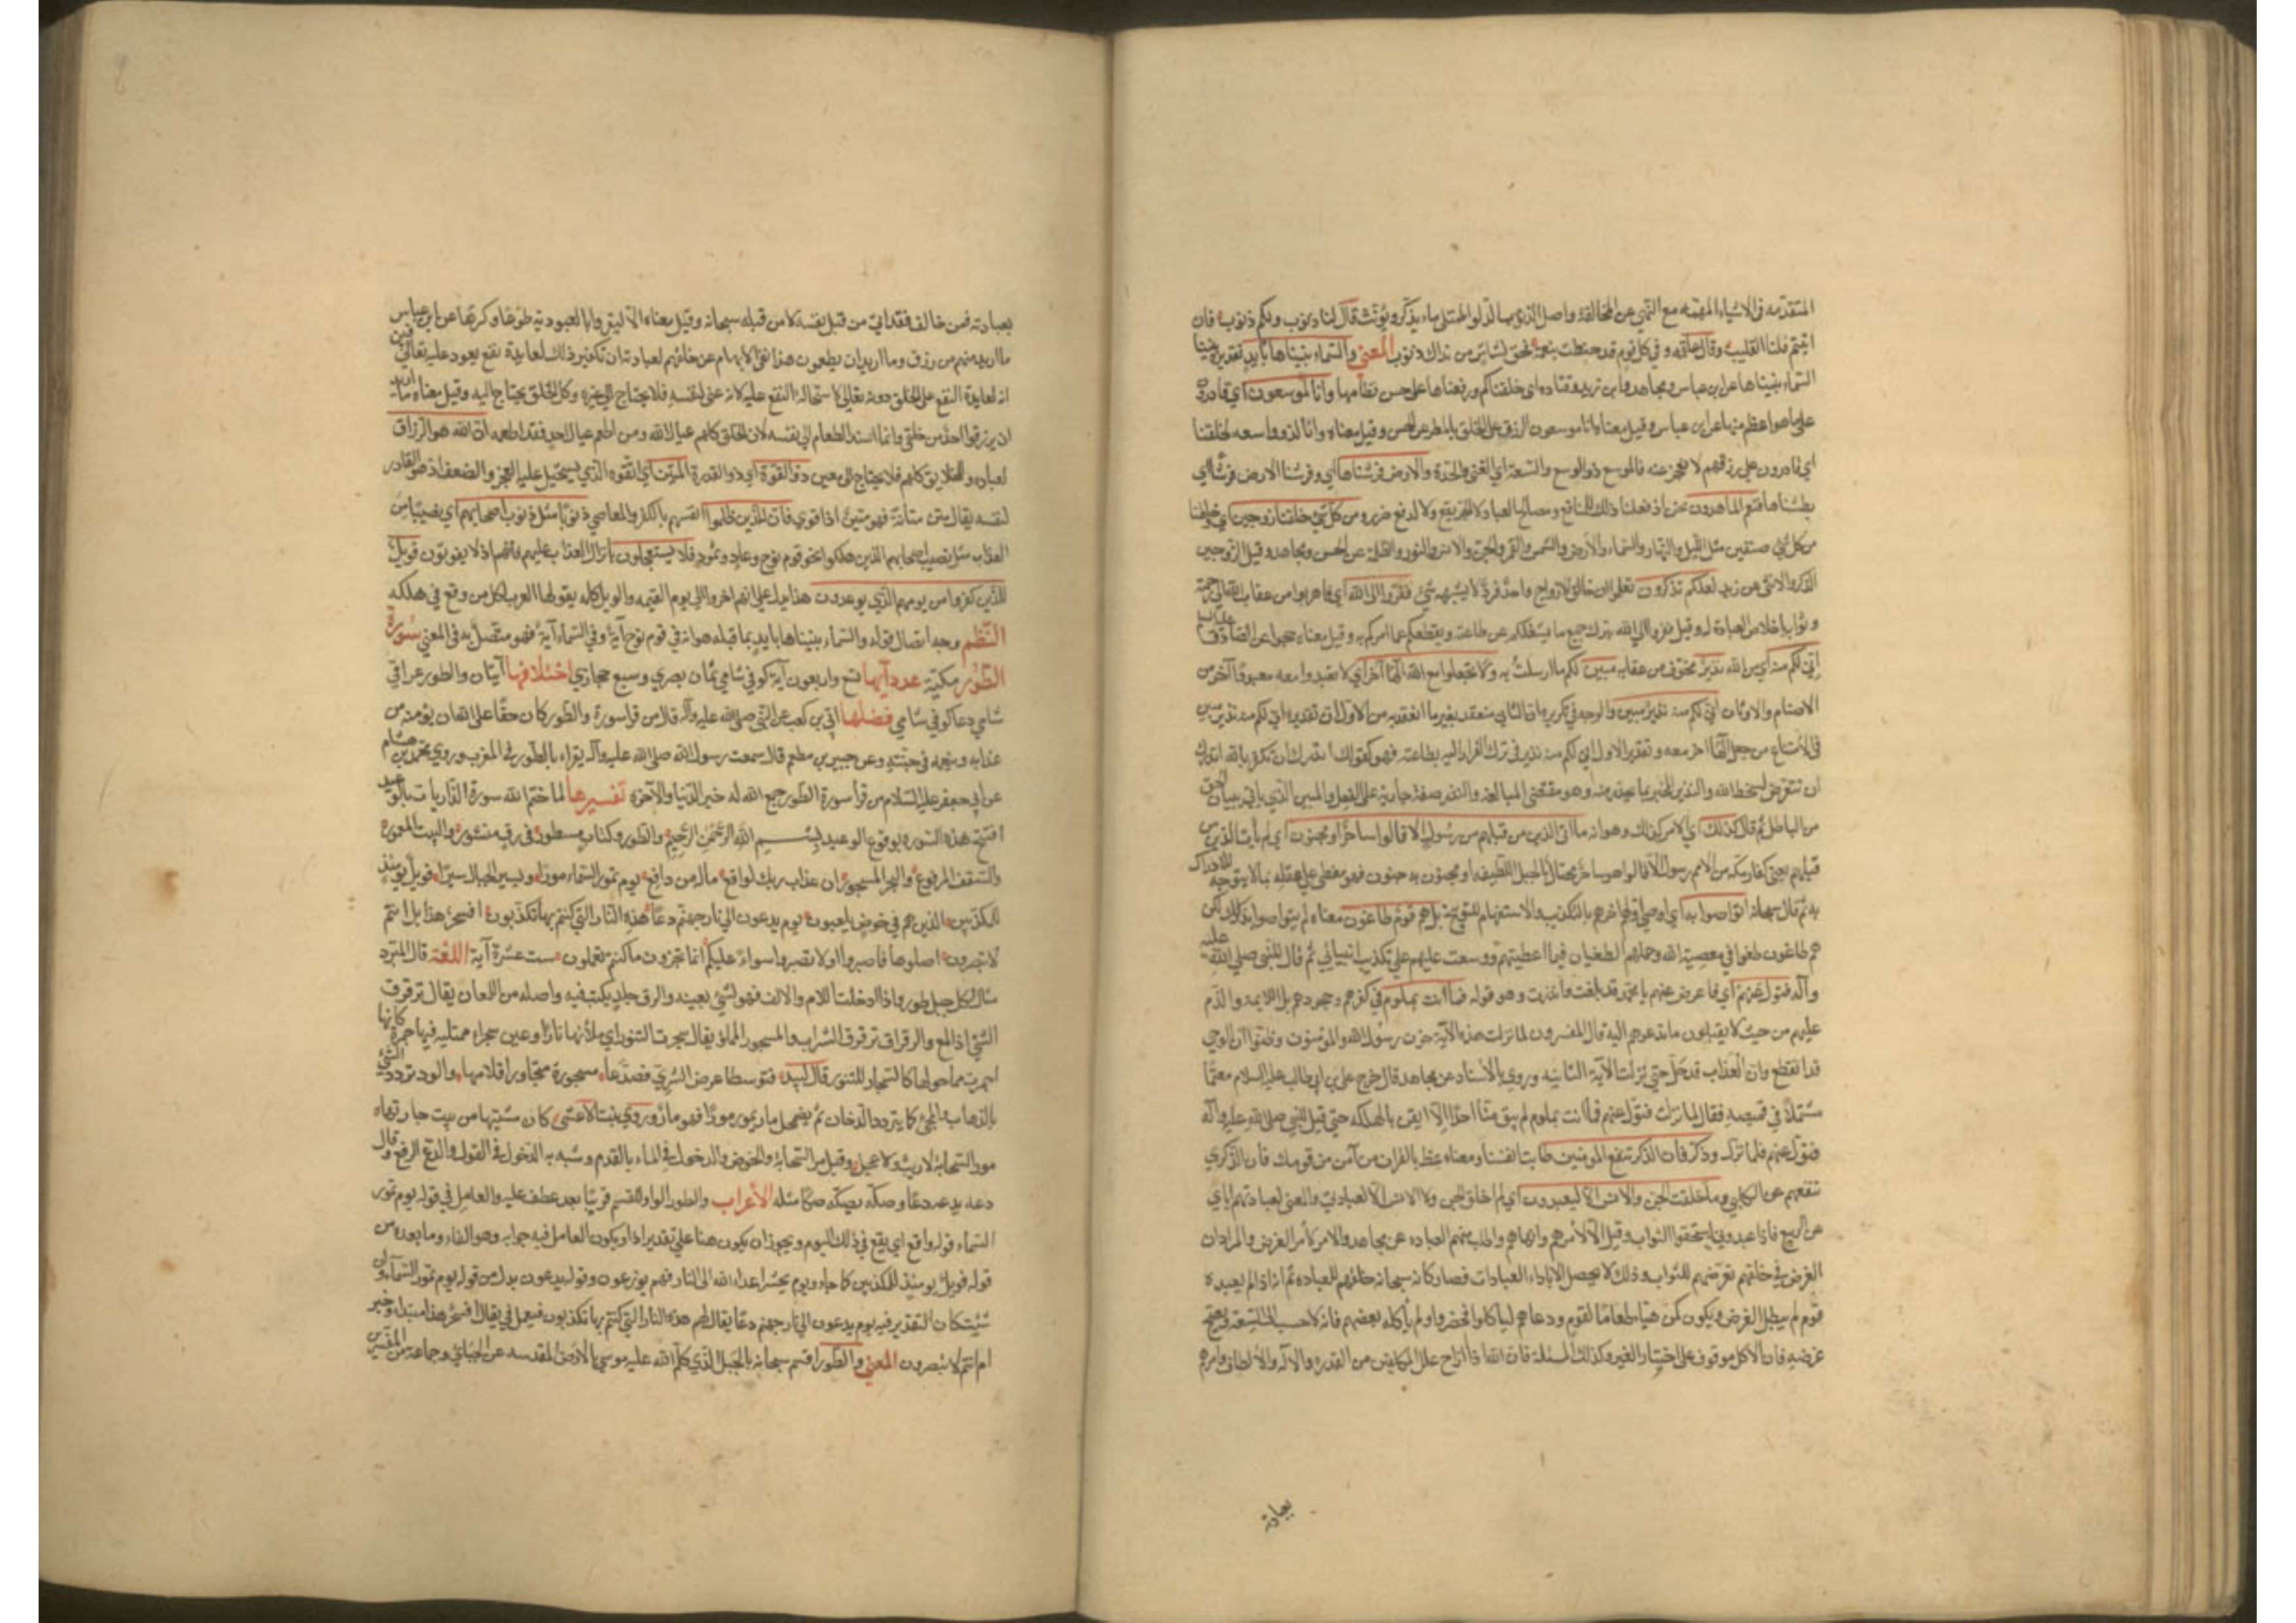 المتقدمه فى الاشياء المهمّه مع النهي عن المخالفة واصل الذنوب الدلو الممتلي ماء يذكر ويؤنث قال لنا ذنوب ولكم ذنوب فان
ابيتم فلنا القليب وقال علقمه وفي كل قوم قد خبطت بنعمة فحق لشاس من نداك ذنوب المعنى والسماء بنيناها بايد تقديره بنينا
السماء بنيناها عن ابن عباس ومجاهد وابن زيد وقتاده اي خلقناكم ورفعناها على حسن نظامها وانا لموسعون اي قادرون
على ما هو اعظم منها عن ابن عباس وقيل معناه وانا موسعون الرزق على الخلق بالمطر عن الحسن وقيل معناه وانا لذو سعه لخلقنا
اي قادرون على رزقهم لا نعجز عنه فالموسع ذو الوسع والسعة اي الغنى والجدة والارض فرشناها اي وفرشنا الارض فرشناها اي
بطسناها فنعم الماهدون نحن اذ فعلنا ذلك للمنافع ومصالح العباد لا لجر نفع ولا لدفع ضرر ومن كل شئ خلقنا زوجين اي وخلقنا
من كل شئ صنفين مثل الليل والنهار والسماء والارض والشمس والقمر والجن والانس والنور والظلمة عن الحسن ومجاهد وقيل الزوجين
الذكر والانثى عن زيد لعلكم تذكرون تعلموا ان خالق الازواج واحد فرد لا يشبهه شئ ففروا الى الله اي فاهربوا من عقاب الله الى رحمته
وثوابه باخلاص العبادة له وقيل ففروا الى الله بترك جميع ما يشغلكم عن طاعته ويقطعكم عما امركم به وقيل معناه حجوا عن الصادق عليه السلم
اني لكم منه اي من الله نذير مخوف من عقابه مبين لكم ما ارسلت به ولا تجعلوا مع الله الها آخر اي لا تعبدوا معه معبودا آخر من
الاصنام والاوثان اني لكم منه نذير مبين والوجه في تكريره ان الثاني منعقد بغير ما انعقد به من الاول اذ تقديره اني لكم منه نذير مبين
في الامتناع من جعل اله آخر معه وتقدير الاول اني لكم منه نذير في ترك الفرار اليه بطاعته فهو كقولك انذرك ان تكفر بالله انذرك
ان تتعرض لسخط الله والنذير المخبر بما يحذر منه وهو مقتضى المبالغة والنذر صفة جارية على الفعل والمبين الذي ياتي ببيان الحق
من الباطل ثم قال كذلك اي الامر كذلك وهو انه ما اتى الذين من قبلهم من رسول الا قالوا ساحر او مجنون اي لم يأت الذين من
قبلهم يعني كفار مكه من الامم رسول الا قالوا هو ساحر محتال بالحيل اللطيفه او مجنون به جنون فهو مغطى على عقله بما لا يتوجه للادراك
به ثم قال سبحانه اتواصوا به اي اوصى اولهم اخرهم بالتكذيب والاستفهام للتوبيخ بل هم قوم طاغون معناه لم يتواصوا بذلك لكن
هم طاغون طغوا في معصية الله وحملهم الطغيان فيما اعطيتهم ووسعت عليهم على تكذيب انبيائي ثم قال للنبي صلى الله عليه
وآله فتول عنهم اي فاعرض عنهم يا محمد فقد بلغت وانذرت وهو قوله فما انت بملوم في كفرهم وجحودهم بل اللايمة والذم
عليهم من حيث لا يقبلون ما تدعوهم اليه قال المفسرون لما نزلت هذه الآية حزن رسول الله والمؤمنون وظنوا ان الوحي
قد انقطع وان العذاب قد حل حتى نزلت الآية الثانيه وروي بالأسناد عن مجاهد قال خرج علي بن ابي طالب عليه السلام معتما
مشتملا في قميصه فقال لما نزلت فتول عنهم فما انت بملوم لم يبق منا احد الا ايقن بالهلكه حتى قيل للنبي صلى الله عليه وآله
فتول عنهم فلما نزل وذكر فان الذكرى تنفع المؤمنين طابت انفسنا ومعناه عظ بالقران من آمن من قومك فان الذكرى
تنفعهم عن الكلبي وما خلقت الجن والانس الا ليعبدون اي لم اخلق الجن ولا الانس الا لعبادتي والمعنى لعبادتهم اياي
عن الربيع فاذا عبدوني استحقوا الثواب وقيل الا لآمرهم وانهاهم واطلب منهم العباده عن مجاهد والامر كأمر الغرض والمراد ان
الغرض في خلقهم تعريضهم للثواب وذلك لا يحصل الا باداء العبادات فصار كانه سبحانه خلقهم للعباده ثم انه اذا لم يعبده
قوم لم يبطل الغرض ويكون كمن هيّا طعاما لقوم ودعاهم لياكلوا فحضروا ولم يأكله بعضهم فانه لا ينسب الى السفه ويصح
غرضه فان الاكل موقوف على اختيار الغير وكذلك المسئلة فان الله اذا ازاح علل المكلفين من القدره والآله والألطاف وامرهم
بعبادته
بعبادته فمن خالف فقد اتى من قبل نفسه لا من قبله سبحانه وقيل معناه الا ليقروا بالعبودية طوعا وكرها عن ابن عباس
ما اريد منهم من رزق وما اريد ان يطعمون هذا نفي الايهام عن خلقهم لعبادته ان تكون ذلك لعايدة نفع يعود عليه تعالى فبين
انه لعايدة النفع على الخلق دونه تعالى لاستحالة النفع عليه لانه غنى لنفسه فلا يحتاج الى غيره وكل الخلق يحتاج اليه وقيل معناه ما اريد
ان يرزقوا احدا من خلقي وانما اسند الطعام الى نفسه لان الخلق كلهم عيال الله ومن اطعم عيال احد فقد اطعمه ان الله هو الرزاق
لعباده وللخلايق كلهم فلا يحتاج الى معين ذو القوة اي ذو القدرة المتين اي القوه الذي يستحيل عليه العجز والضعف اذ هو القادر
لنفسه يقال متن متانة فهو متين اذا قوي فان للذين ظلموا انفسهم بالكفر والمعاصي ذنوبا مثل ذنوب اصحابهم اي نصيبا من
العذاب مثل نصيب اصحابهم الذين هلكوا نحو قوم نوح وعاد وثمود فلا يستعجلون بانزال العذاب عليهم فانهم اذ لا يفوتون فويل
للذين كفروا من يومهم الذي يوعدون هذا يدل على انهم اخروا الى يوم القيمه والويل كلمه يقولها العرب لكل من وقع في هلكه
النظم وجه اتصال قوله والسماء بنيناها بايد بما قبله هو انه في قوم نوح آية وفي السماء آية فهو متصل به في المعنى سورة
الطور مكيّة عدد آيها تسع واربعون آية كوفي شامي ثمان بصري وسبع حجازي اختلافها آيتان والطور عراقي
شامي دعا كوفي شامي فضلها ابي بن كعب عن النبي صلى الله عليه وآله قال من قرا سورة والطور كان حقا على الله ان يؤمنه من
عذابه وينعمه في جنته وعن جبير بن مطعم قال سمعت رسول الله صلى الله عليه وآله يقراء بالطور في المغرب وروي محمد بن هشام
عن ابي جعفر عليه السلام من قرا سورة الطور جمع الله له خير الدنيا والآخرة تفسيرها لما ختم الله سورة الذاريات بالوعيد
افتتح هذه السوره بوقوع الوعيد بسم الله الرحمن الرحيم والطور وكتاب مسطور في رق منشور والبيت المعمور
والسقف المرفوع والبحر المسجور ان عذاب ربك لواقع ماله من دافع يوم تمور السماء مورا وتسير الجبال سيرا فويل يومئذ
للمكذبين الذين هم في خوض يلعبون يوم يدعون الى نار جهنم دعا هذه النار التي كنتم بها تكذبون افسحر هذا بل انتم
لا تبصرون اصلوها فاصبروا اولا تصبروا سواء عليكم انما تجزون ما كنتم تعملون ست عشرة آية اللغة قال المبرد
يقال لكل جبل طور فاذا ادخلت اللام والالف فهو لشئ بعينه والرق جلد يكتب فيه واصله من اللمعان يقال ترقرق
الشئ اذا لمع والرقراق ترقرق السراب والمسجور المملؤ يقال سجرت التنور اي ملأتها نارا وعين سجراء ممتليه فيها حمرة كانها
احمرت مما حولها كالسجار للتنور قال لبيد فتوسطا عرض السري فصدّعا مسجورة متجاورا قلامها والمور تردد الشئ
بالذهاب والمجئ كما يتردد الدخان ثم يضمحل مار يمور مورا فهو مائر وروي بيت الاعشى كان مشيتها من بيت جارتها
مور السحابة لا ريث ولا عجل وقيل مر السحابة والخوض والدخول في الماء بالقدم وشبه به الدخول في القول والدع الدفع وقال
دعه يدعه دعا وصكه يصكه صكا مثله الأعراب والطور الواو للقسم قرينا بعد عطف عليه والعامل في قوله يوم تمور
السماء قوله واقع اي يقع في ذلك اليوم ويجوز ان يكون هنا على تقدير اذا ويكون العامل فيه جوابه وهو الفاء وما بعده من
قوله فويل يومئذ للمكذبين كما جاء ويوم يحشر اعداء الله الى النار فهم يوزعون وقوله يدعون بدل من قوله يوم تمور السماء وان
شئت كان التقدير فيه يوم يدعون الى نار جهنم دعا يقال لهم هذه النار التي كنتم بها تكذبون فيعمل في يقال افسحر هذا مبتداء وخبر
ام انتم لا تبصرون المعنى والطور اقسم سبحانه بالجبل الذي كلم الله عليه موسى بالارض المقدسه عن الجبائي وجماعة من المفسرين